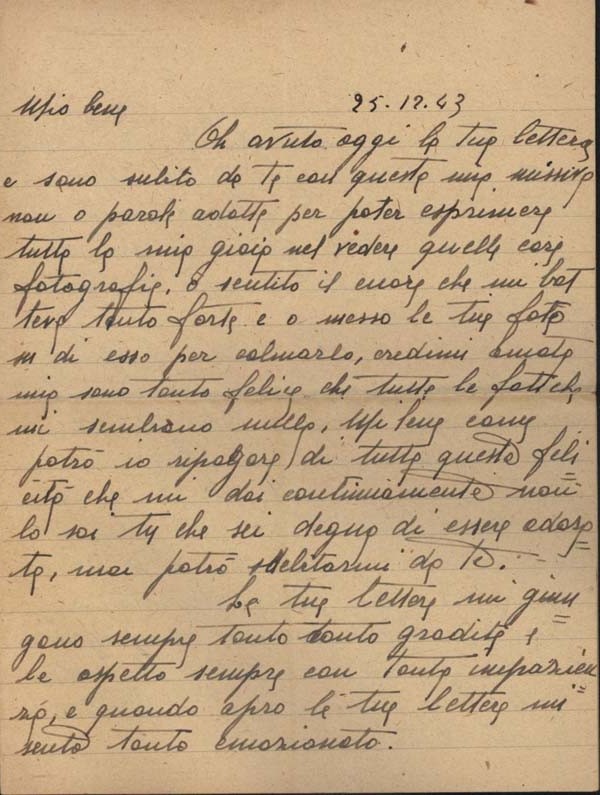 Mio bene 25.12.43
Oh avuto oggi la tua lettera
e sono subito da te con questa mia missiva
non o parole adatte per poter esprimere
tutta la mia gioia nel vedere quelle care
fotografie, o sentito il cuore che mi bat
teva tanto forte e o messo le tue foto
su di esso per calmarlo, credimi amata
mia sono tanto felice che tutte le fatiche
mi sembrano nulla, Mi bene come
potrò io ripagare di tutta questa feli
cità che mi dai continuamente non
lo sai tu che sei degna di essere adora
ta, mai potrò sdebitarmi da te.
Le tue lettere mi giun
gono sempre tanto tanto gradite e
le aspetto sempre con tanta impazien
za, e quando apro le tue lettere mi
sento tanto emozionato.